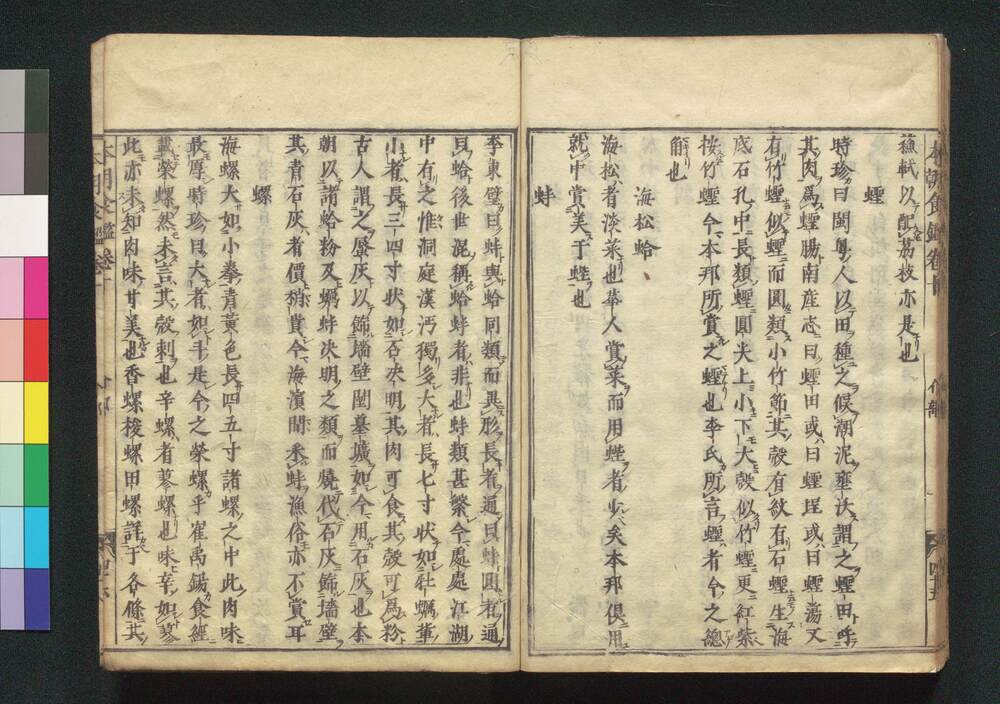 蘓軾以配荔枝亦是也
蟶
時珍曰閩粤人以田種之候潮泥壅沃謂之蟶田呼
其肉爲蟶腸南産志曰蟶田或曰蟶埕或曰蟶蕩又
有竹蟶似蟶而圓類小竹節其殻有紋有石蟶生海
底石孔中長類蟶圓尖上小下大殻似竹蟶更紅紫
按竹蟶今本邦所賞之蟶也李氏所言蟶者今之總
角也
海松蛤
海松者淡菜也華人賞菜而用蟶者少矣本邦倶用
就中賞美于蟶也
蚌
李東璧曰蚌與蛤同類而異形長者通貝蚌圓者通
貝蛤後世混稱蛤蚌者非也蚌類甚繁今處處江湖
中有之惟洞庭漢沔獨多大者長七寸状如牡蠣軰
小者長三四寸状如石决明其肉可食其殻可爲粉
古人謂之蜃灰以飾墻壁闉墓壙如今用石灰也本
朝以諸蛤粉及蠣蚌决明之類而燒代石灰飾墻壁
其青石灰者價
賞今海濱間
蚌漁俗亦不賞耳
螺
海螺大如小拳青黃色長四五寸諸螺之中此肉味
最厚時珍曰大者如斗是今之榮螺乎崔禹鍚食經
載榮螺然未言其殻刺也辛螺者蓼螺也味辛如蓼
此亦未知肉味甘美也香螺梭螺田螺詳于各條其